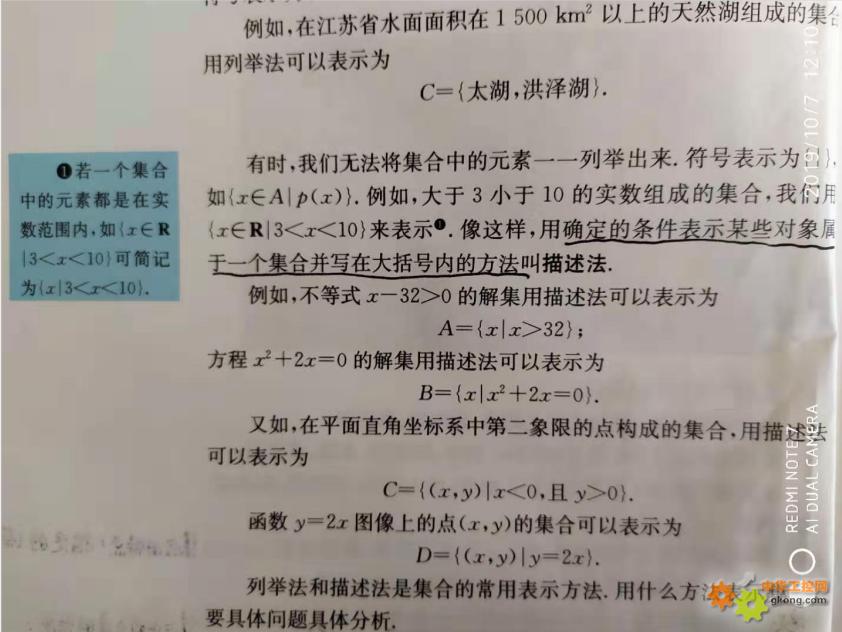 例如,在江苏省水面面积在 1 500 km² 以上的天然湖组成的集合
用列举法可以表示为
C={太湖,洪泽湖}.
有时,我们无法将集合中的元素一一列举出来. 符号表示为{|},
如{x∈A|p(x)}. 例如,大于 3 小于 10 的实数组成的集合,我们用
{x∈R|3<x<10}来表示❶. 像这样,用确定的条件表示某些对象属
于一个集合并写在大括号内的方法叫描述法.
❶若一个集合
中的元素都是在实
数范围内,如{x∈R
|3<x<10}可简记
为{x|3<x<10}.
例如,不等式 x-32>0 的解集用描述法可以表示为
A={x|x>32};
方程 x²+2x=0 的解集用描述法可以表示为
B={x|x²+2x=0}.
又如,在平面直角坐标系中第二象限的点构成的集合,用描述法
可以表示为
C={(x,y)|x<0,且 y>0}.
函数 y=2x 图像上的点(x,y)的集合可以表示为
D={(x,y)|y=2x}.
列举法和描述法是集合的常用表示方法. 用什么方法表
要具体问题具体分析.
2019/10/7 12:10
REDMI NOTE 7
AI DUAL CAMERA
中华工控网
gkong.com